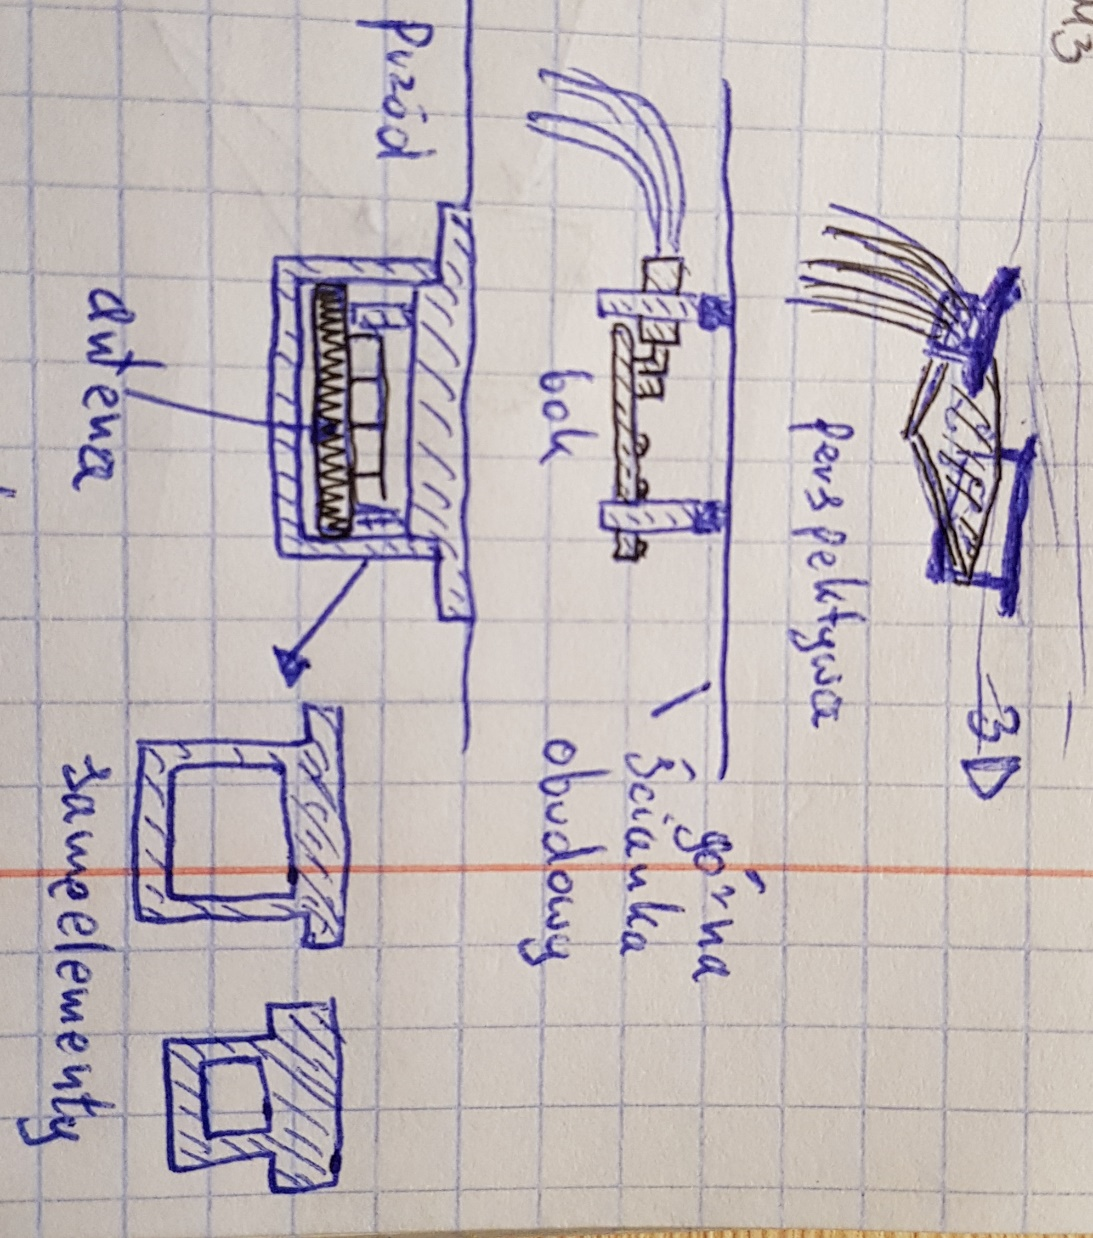 M3
3D
perspektywa
górna
ścianka
obudowy
bok
Przód
antena
same elementy